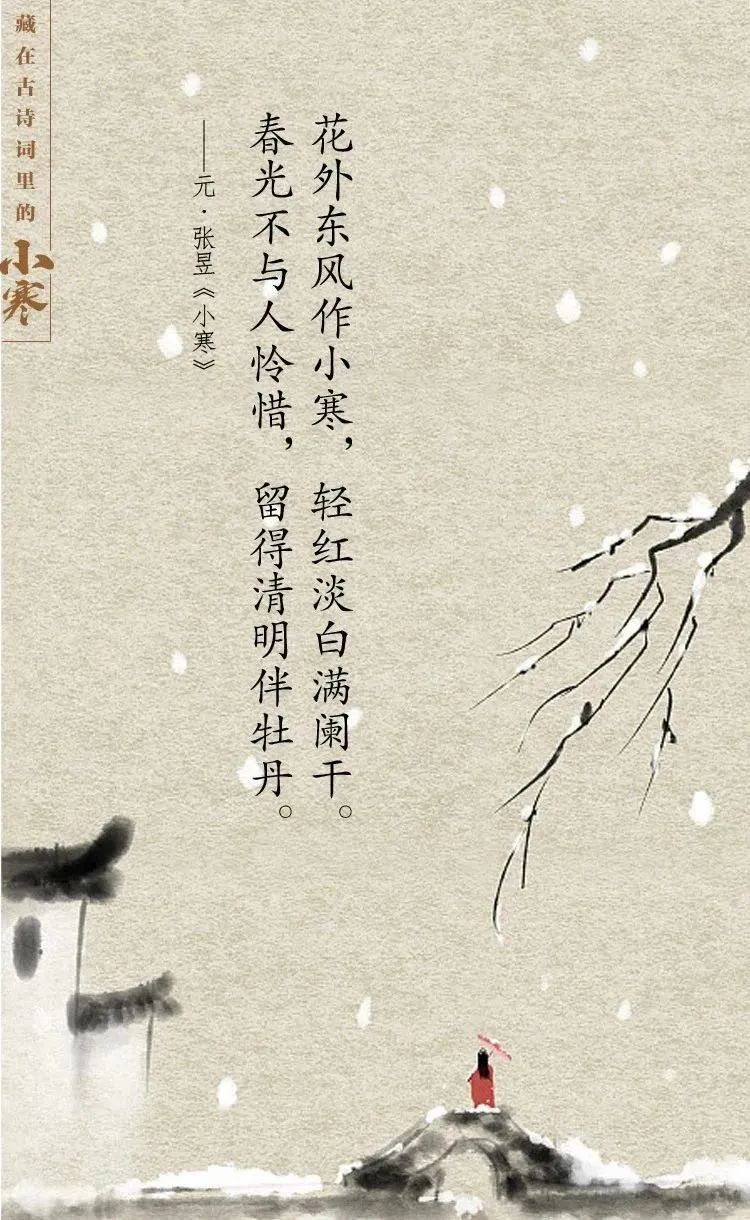 藏在古诗词里的
小寒
花外东风作小寒，轻红淡白满阑干。
春光不与人怜惜，留得清明伴牡丹。
——元·张昱《小寒》